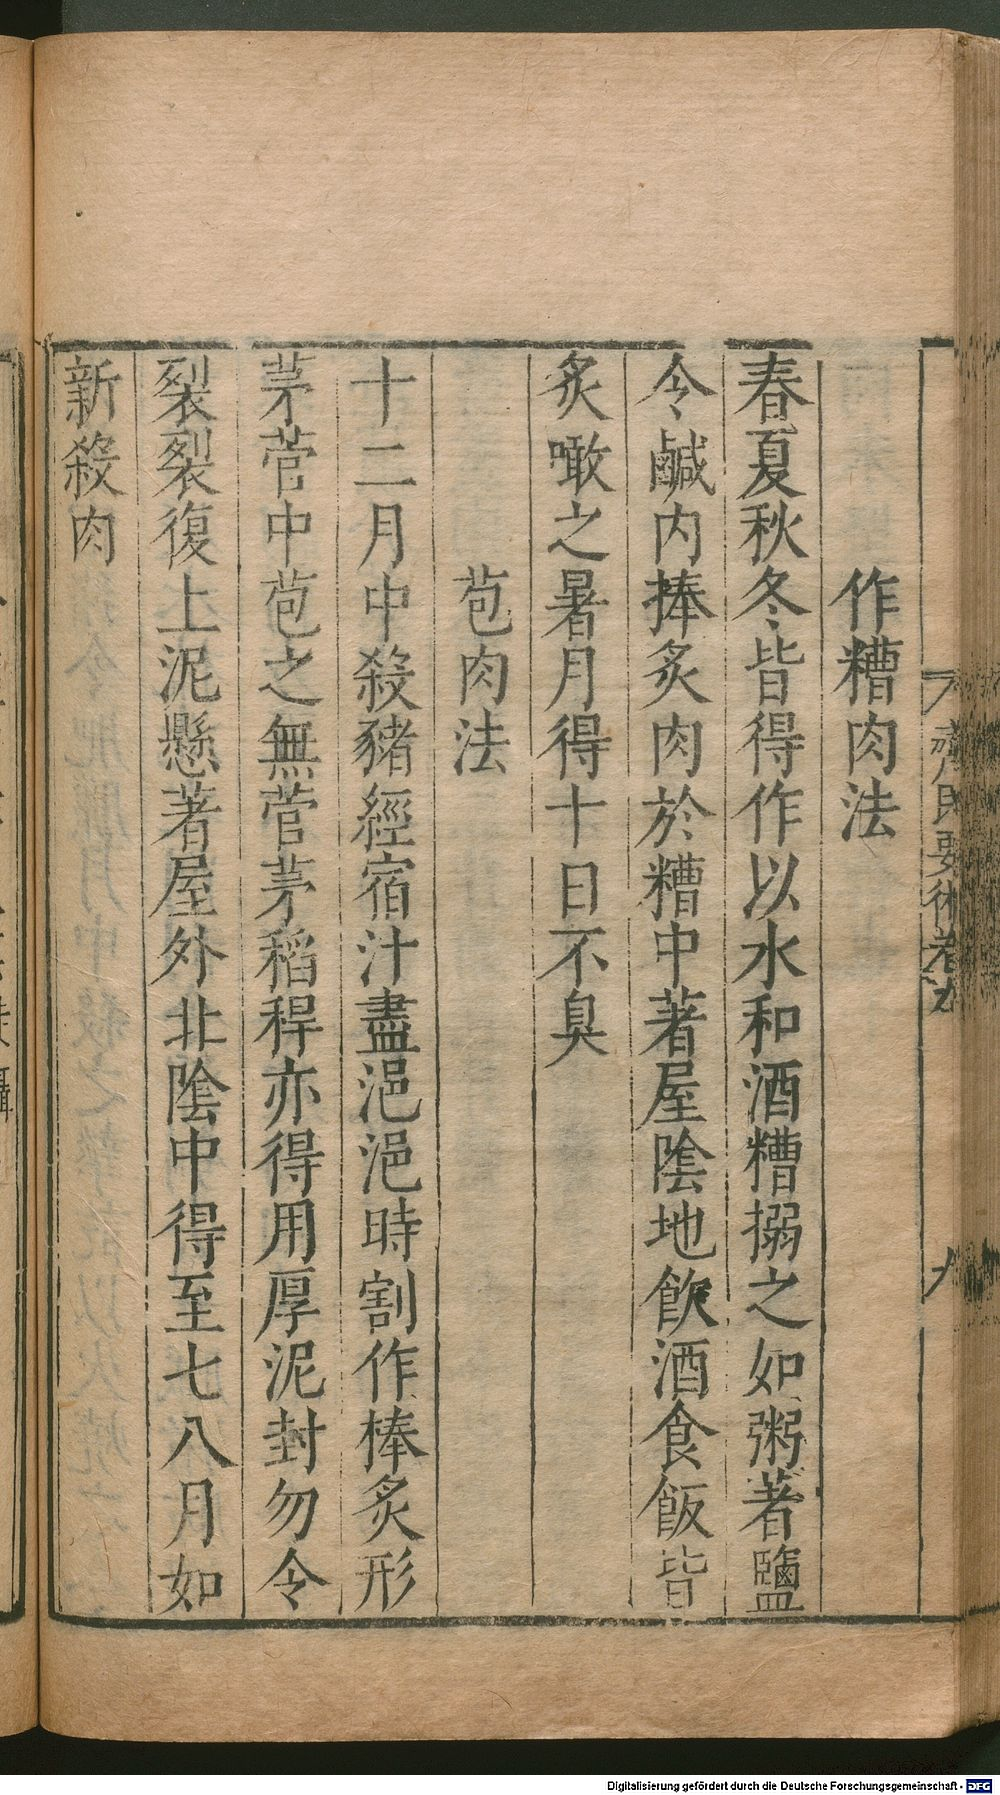 齊民要術卷九
九
作糟肉法
春夏秋冬皆得作以水和酒糟搦之如粥著鹽
令鹹内捧炙肉於糟中著屋陰地飲酒食飯皆
炙噉之暑月得十日不臭
苞肉法
十二月中殺豬經宿汁盡浥浥時割作棒炙形
茅菅中苞之無菅茅稻稈亦得用厚泥封勿令
裂裂復上泥懸著屋外北陰中得至七八月如
新殺肉
Digitalisierung gefördert durch die Deutsche Forschungsgemeinschaft - DFG